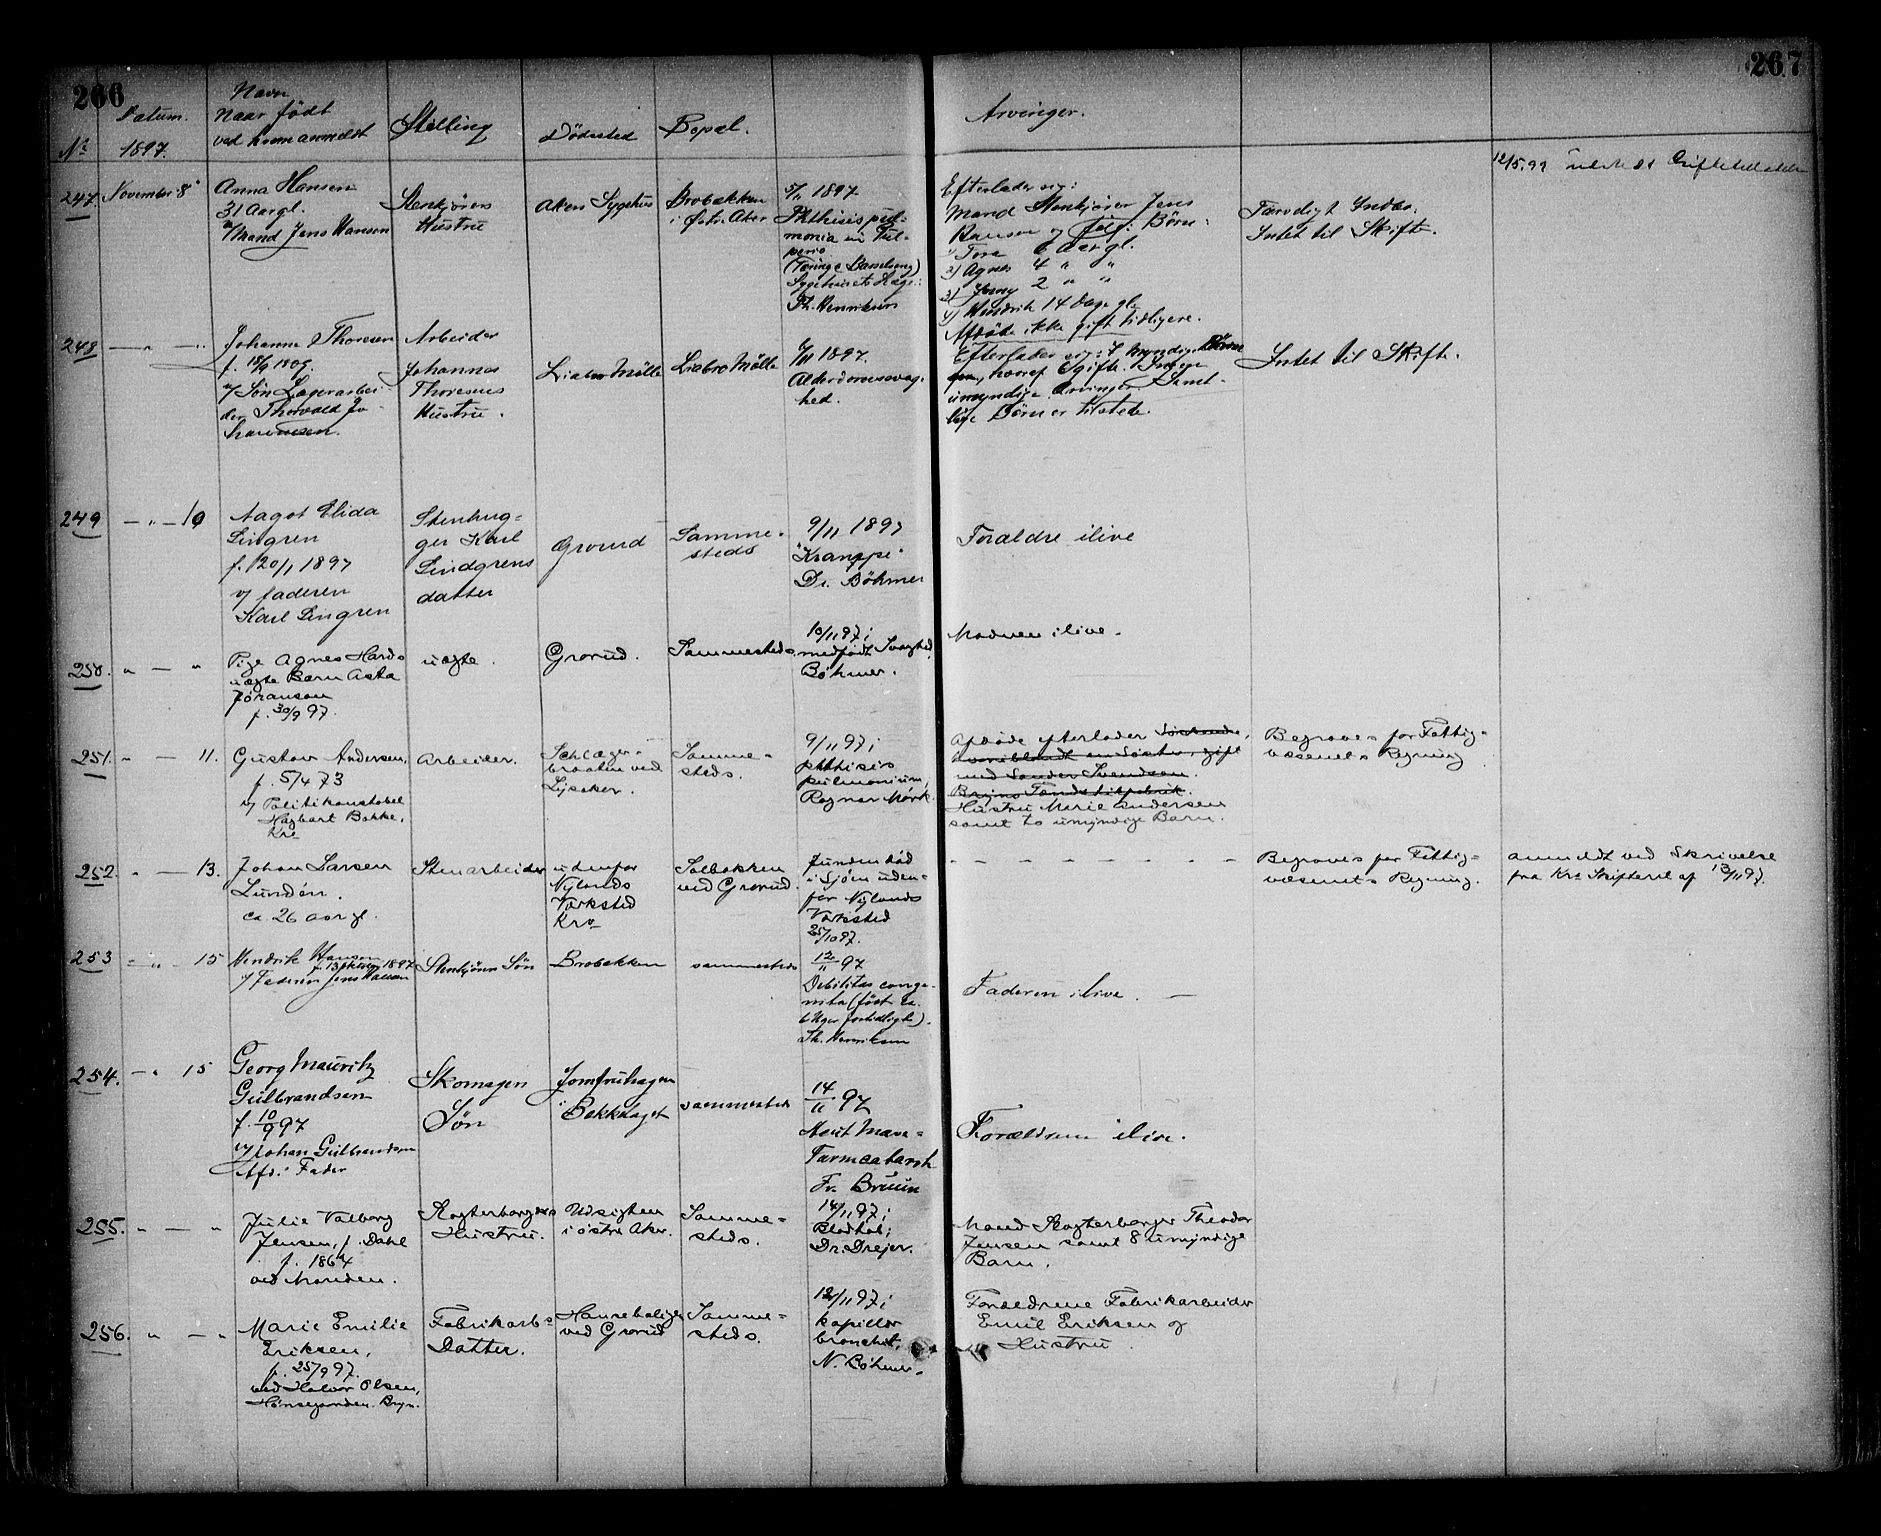 266
267
Navn
Datum.
Naar født
Stilling
Dødssted
Bopæl.
Arvinger.
ved hvem anmeldt
No
1897.
12/5.99
247. November 8
Anna Hansen
31 Aar gl.
v/ Mand Jens Hansen
Stenkjørers
Hustru
Akers Sygehus
Brobækken
i Østre Aker
5/11 1897
Phthisis pul-
(Tæringe
Sygehusets Læge:
Th. Henriksen
Efterlader sig:
Mand Stenkjører Jens
Hansen og Børn:
1) Tora 6 Aar gl.
2) Agnes 4 " "
3) 2 " "
4) Hendrik 14 Dage gl.
Afdøde ikke gift tidligere.
Intet til Skifte.
248 — " — "
Johanne Thoresen
f. 18/9 1809.
v/ Søn Lagerarbei-
der Thorvald Jo-
hannesen.
Arbeider
Johannes
Thoresens
Hustru.
Liabro Mølle
Liabro Mølle
6/11 1897.
Alderdomssvag-
hed.
Efterlader sig: 7 myndige Børn
hvoraf gifte. Ingen
umyndige Arvinger. Samt-
lige Børn er tilstede.
Intet til Skifte.
249 — " — 10
Aagot Elida
Lingren
f. 20/1 1897
v/ faderen
Karl Lingren
Stenhug-
ger Karl
Lindgrens
datter
Grorud
Samme-
steds
9/11 1897
"Krampe"
Dr. Bøhmer
Forældre ilive
250. " — "
Pige Agnes Hards
uægte Barn Asta
Johanson
f. 30/9 97.
uægte.
Grorud.
Sammesteds.
10/11 97;
medfødt Svaghed.
Bøhmer.
Moderen ilive.
251. " — 11.
Gustav Andersen,
f. 5/4 73
v/ Politikonstabel
Hagbart Bakke,
Kra
Arbeider.
Schlæger-
braaten ved
Lysaker.
Samme-
steds.
9/11 97;
phthisis
pulmonium,
Ragnar Mørk.
Afdøde efterlader Søskende,
hvoriblandt en Søster, gift
med Sander Svendsen.
Bryns Tændstikfabrik.
Hustru Marie Andersen
samt to umyndige Barn.
Begraves for Fattig-
væsenets Regning
252. " — 13.
Johan Larsen
Lundén.
ca. 26 aar gl.
Stenarbeider
udenfor
Nylands
Værksted
Kra
Solbakken
ved Grorud.
funden død
i Sjøen uden-
for Nylands
Værksted
25/10 97.
— — — — — — —
Begraves for Fattig-
væsenets Regning.
anmeldt ved Skrivelse
fra Kra Skifteret af 13/11 97.
253 — " — 15
Hendrik Hansen
f. 1897
v/ Faderen Jens Hansen
Stenkjørers Søn
Brobækken
sammesteds
12/11 97
Debilitas conge-
nita (født ca.
6 Uger fortidligt).
Th. Henriksen
Faderen ilive. —
254. — " 15
Georg Mauritz
Gulbrandsen
f. 10/9 97
v/ Johan Gulbrandsen
Afd.' Fader
Skomager
Søn
Jomfruhagen
i Bekkelaget
sammesteds
14/11 97
Acut Mave-
Tarmcatarrh
Fr. Bruun
Forældrene ilive.
255. " — "
Julie Valborg
Jensen, f. Dahl
f. 1864
ved Manden.
Slagterborgers
Hustru.
Udsigten
i østre Aker.
Samme-
steds.
14/11 97;
Blodtab;
Dr. Drejer.
Mand Slagterborger Theodor
Jensen samt 8 umyndige
Barn.
256. " — "
Marie Emilie
Eriksen,
f. 25/9 97.
ved Halvor Olsen,
Bryn.
Fabrikarb-
Datter.
ved Grorud
Samme-
steds.
12/11 97;
kapillær
bronchit,
N. Bøhmer.
Forældrene Fabrikarbeider
Emil Eriksen og
Hustru